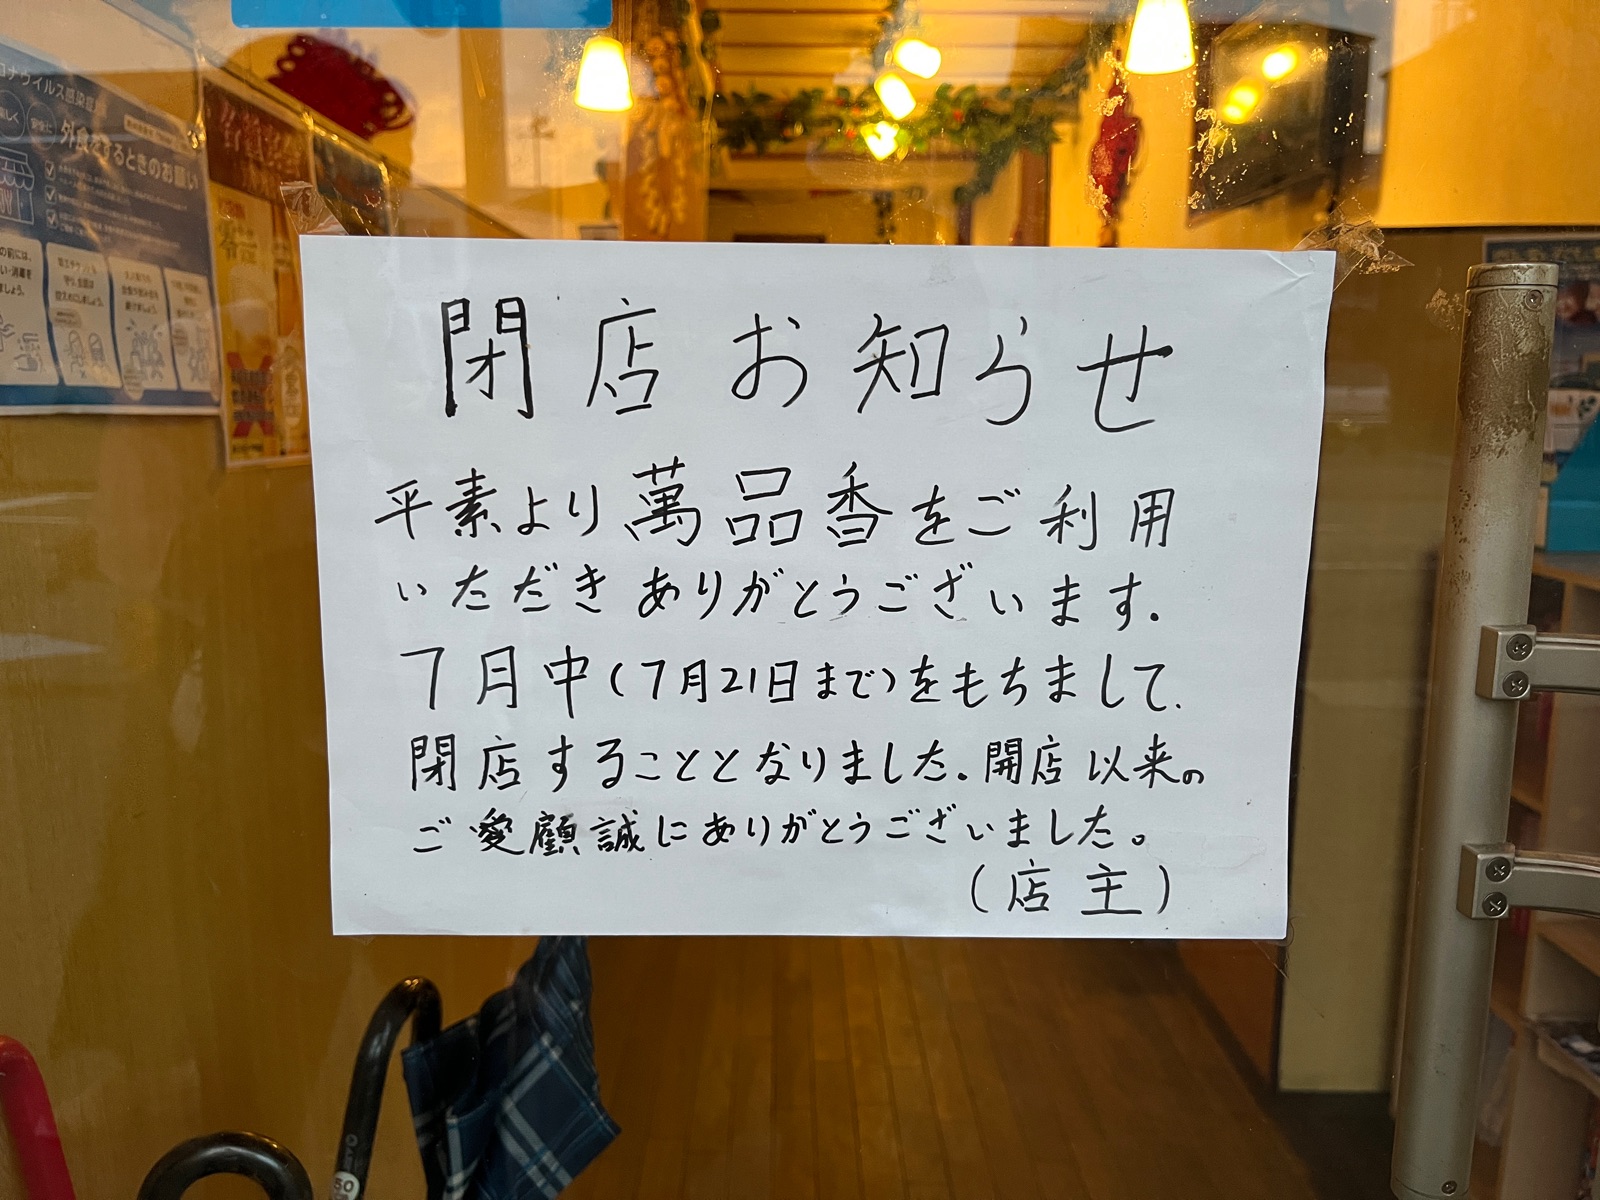 閉店お知らせ
平素より萬品香をご利用
いただきありがとうございます.
7月中(7月21日まで)をもちまして.
閉店することとなりました.開店以来の
ご愛顧誠にありがとうございました。
(店主)
外食をするときのお願い